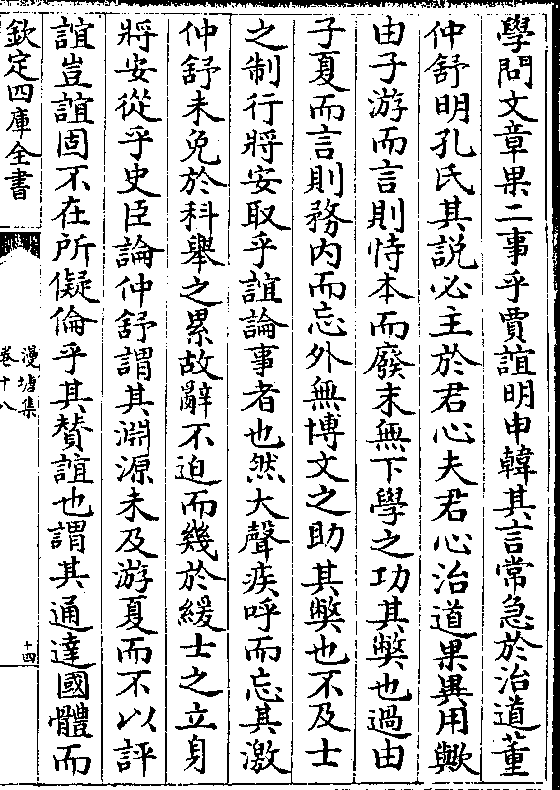 學問文章果二事乎賈誼明申韓其言常急於治道董
仲舒明孔氏其説必主於君心夫君心治道果異用歟
由子游而言則恃本而廢末無下學之功其弊也過由
子夏而言則務内而忘外無博文之助其弊也不及士
之制行將安取乎誼論事者也然大聲疾呼而忘其激
仲舒未免於科舉之累故辭不迫而幾於緩士之立身
將安從乎史臣論仲舒謂其淵源未及游夏而不以評
誼豈誼固不在所儗倫乎其賛誼也謂其通達國體而
欽定四庫全書
漫塘集
卷十八
十四